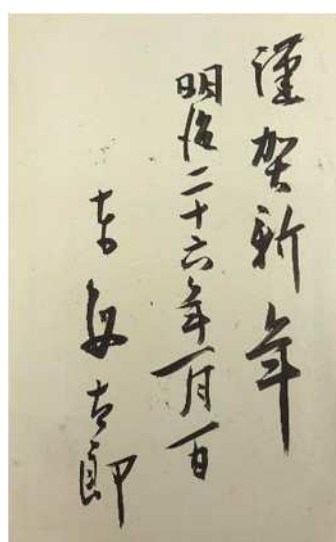 謹賀新年
明治二十六年一月一日
太郎